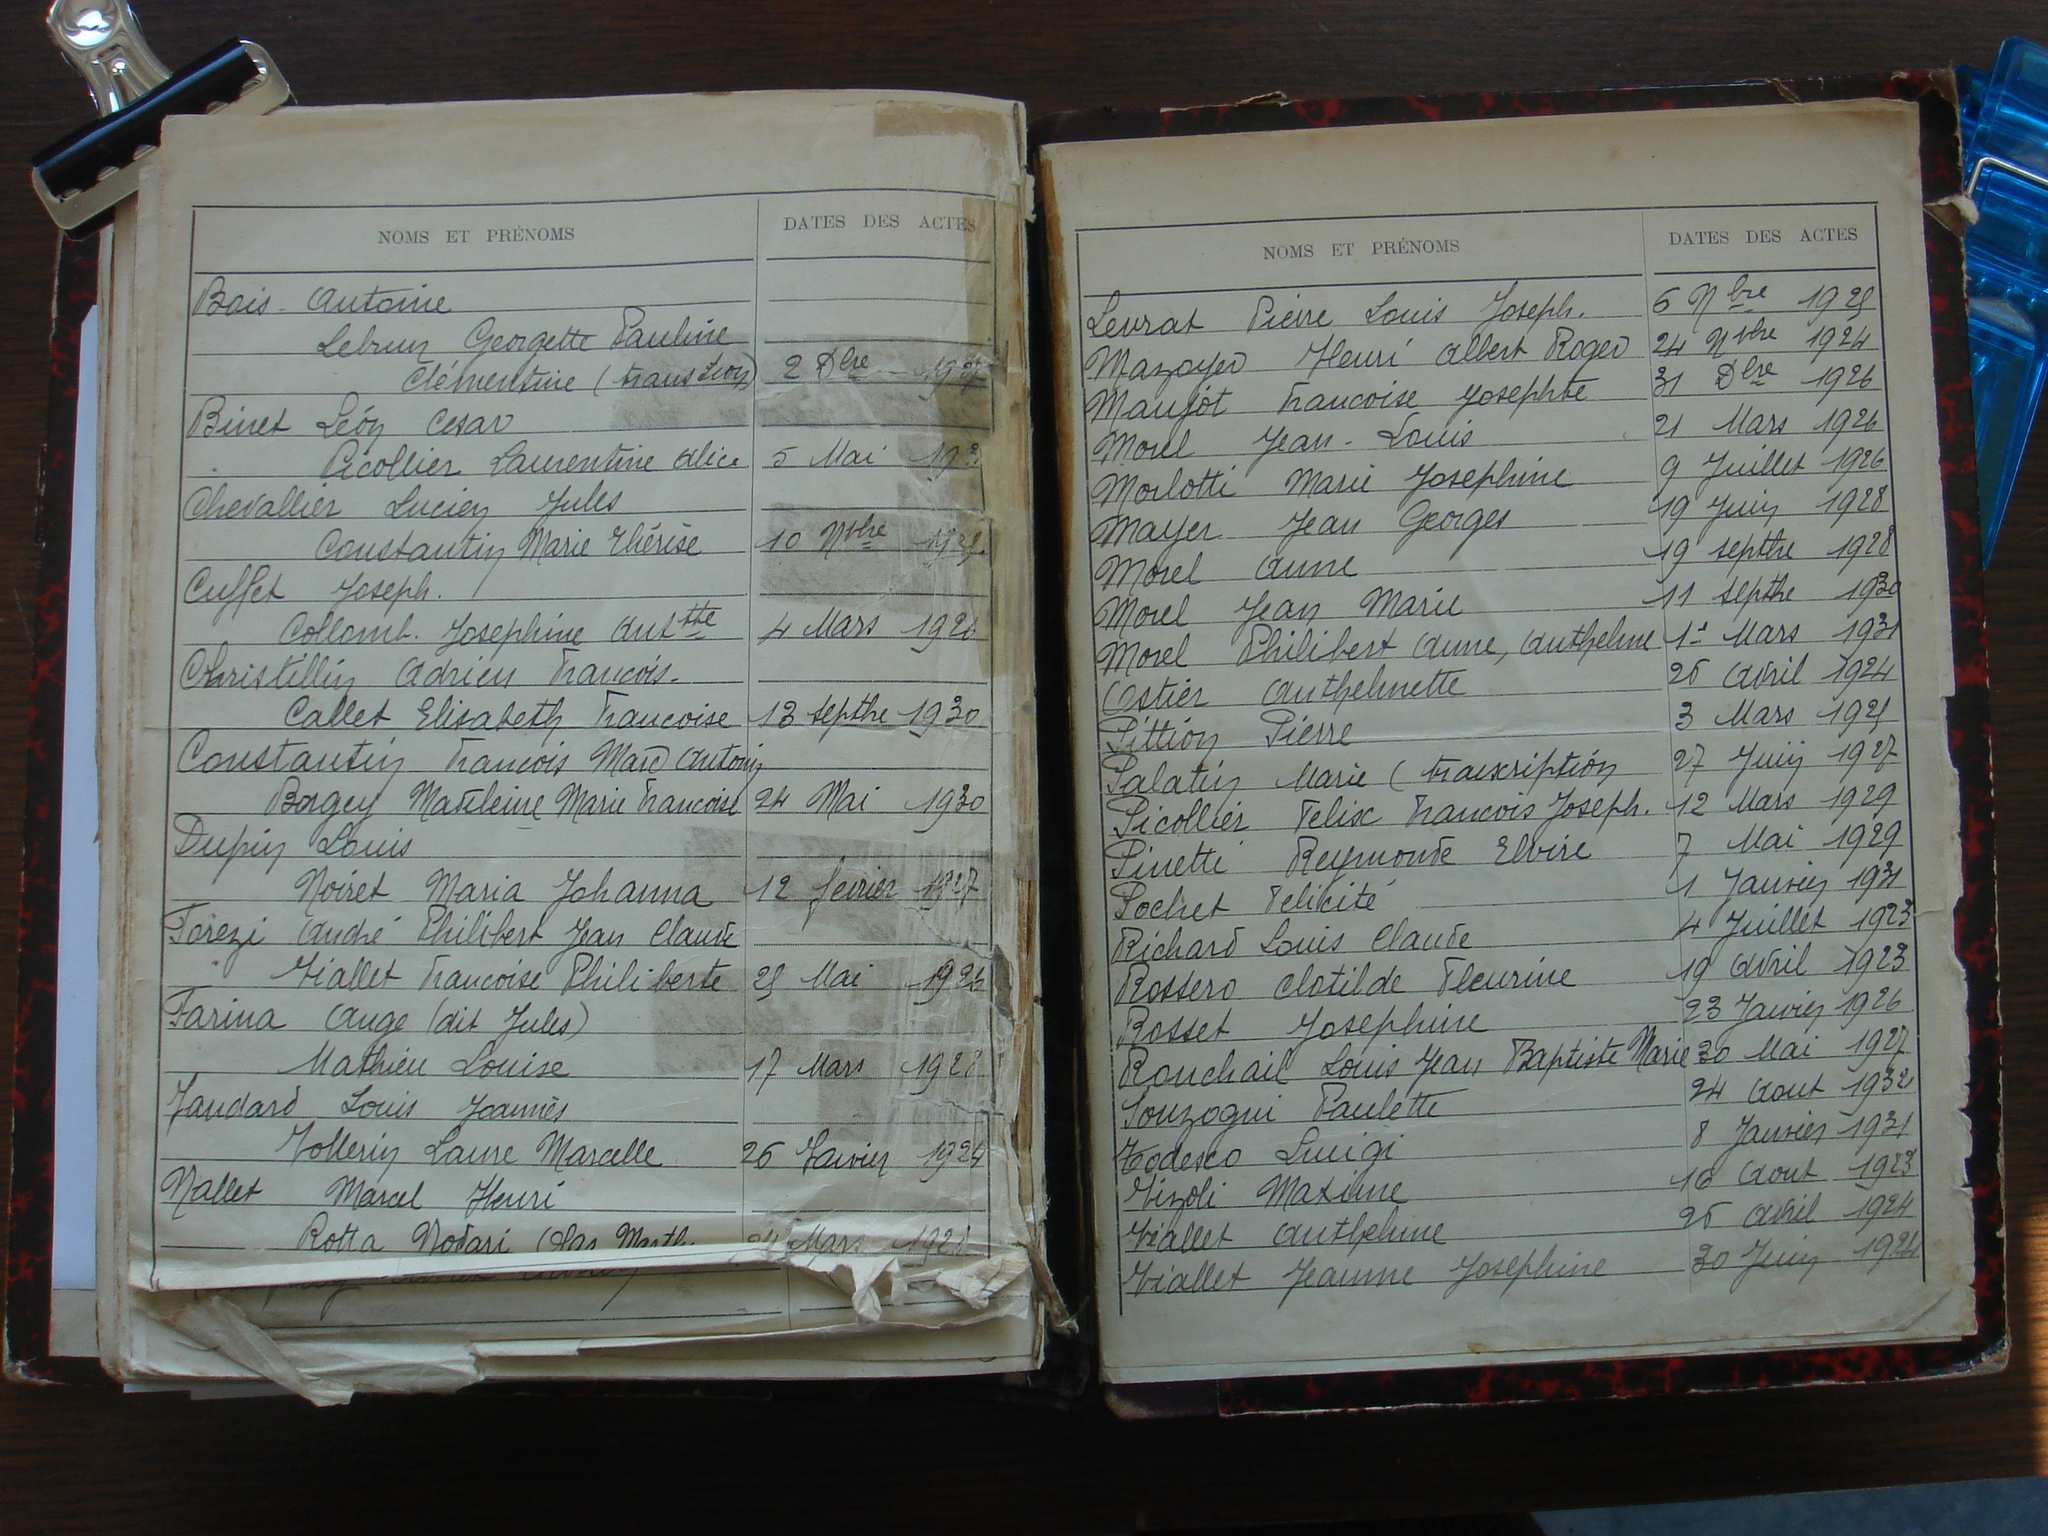 NOMS ET PRÉNOMS DATES DES ACTES
Bois Antoine
Lebrun Georgette Pauline
Clémentine (transcron) 2 Dbre
Binet Léon Cesar
Picollier Laurentine Alice 5 Mai
Chevallier Lucien Jules
Constantin Marie Thérèse 10 Nvbre
Cuffet Joseph.
Collomb. Josephine Anttte 4 Mars 1926
Christillin Adrien Francois.
Callet Elisabeth Francoise 13 septbre 1930
Constantin Francois Marc Antoin
Borgey Madeleine Marie Francoise 24 Mai 1930
Dupin Louis
Noiret Maria Johanna 12 février 1927
Forezi André Philibert Jean Claude
Viallet Francoise Philiberte 25 Mai 1926
Farina Ange (dit Jules)
Mathieu Louise 17 Mars 1928
Jandard Louis Joannès
Vollerin Laure Marcelle 26 Janvier 1924
Nallet Marcel Henri
Rotta Nodari 24 Mars 1928
NOMS ET PRÉNOMS DATES DES ACTES
Levrat Pierre Louis Joseph. 6 Nbre 1925
Mazoyer Henri Albert Roger 24 Nvbre 1924
Maujot Francoise Josephte 31 Dbre 1926
Morel Jean-Louis 21 Mars 1926
Morlotti Marie Josephine 9 Juillet 1926
Mayer Jean Georges 19 Juin 1928
Morel Anne 19 septbre 1928
Morel Jean Marie 11 septbre 1930
Morel Philibert Anne, Anthelme 1er Mars 1931
Ostier Anthelmette 26 Avril 1924
Pittion Pierre 3 Mars 1925
Palatin Marie (transcription 27 Juin 1927
Picollier Felix Francois Joseph. 12 Mars 1929
Pinetti Reymonde Elvire 7 Mai 1929
Pochet Felicité 1 Janvier 1931
Richard Louis Claude 4 Juillet 1923
Rossero Clotilde Fleurine 19 Avril 1923
Rosset Josephine 23 Janvier 1926
Ronchail Louis Jean Baptiste Marie 30 Mai 1927
Souzogni Paulette 24 Aout 1932
Todesco Luigi 8 Janvier 1931
Vizoli Maxime 16 Aout 1923
Viallet Anthelme 26 Avril 1924
Viallet Jeanne Josephine 30 Juin 1924